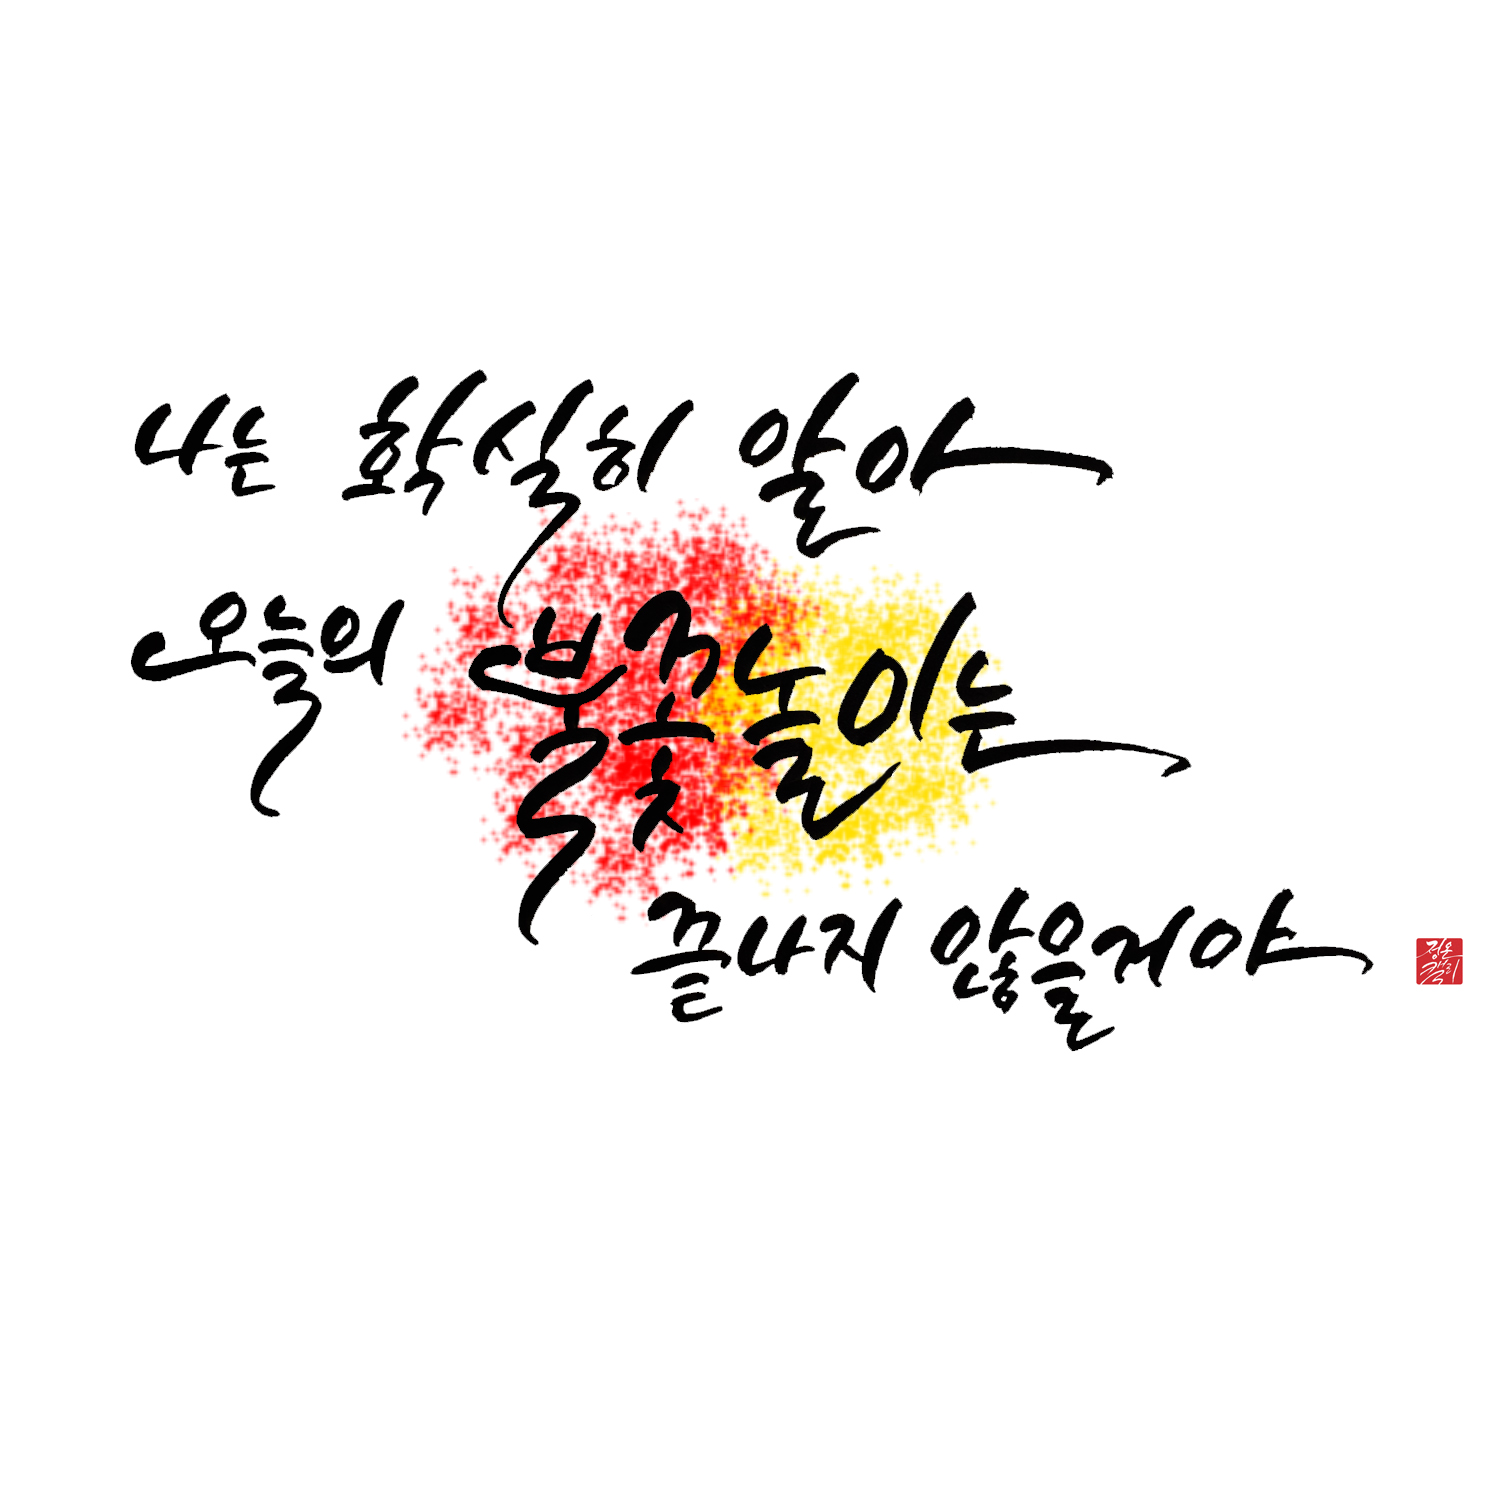 나는 확실히 알아
오늘의 불꽃놀이는
끝나지 않을거야
정온
캘리